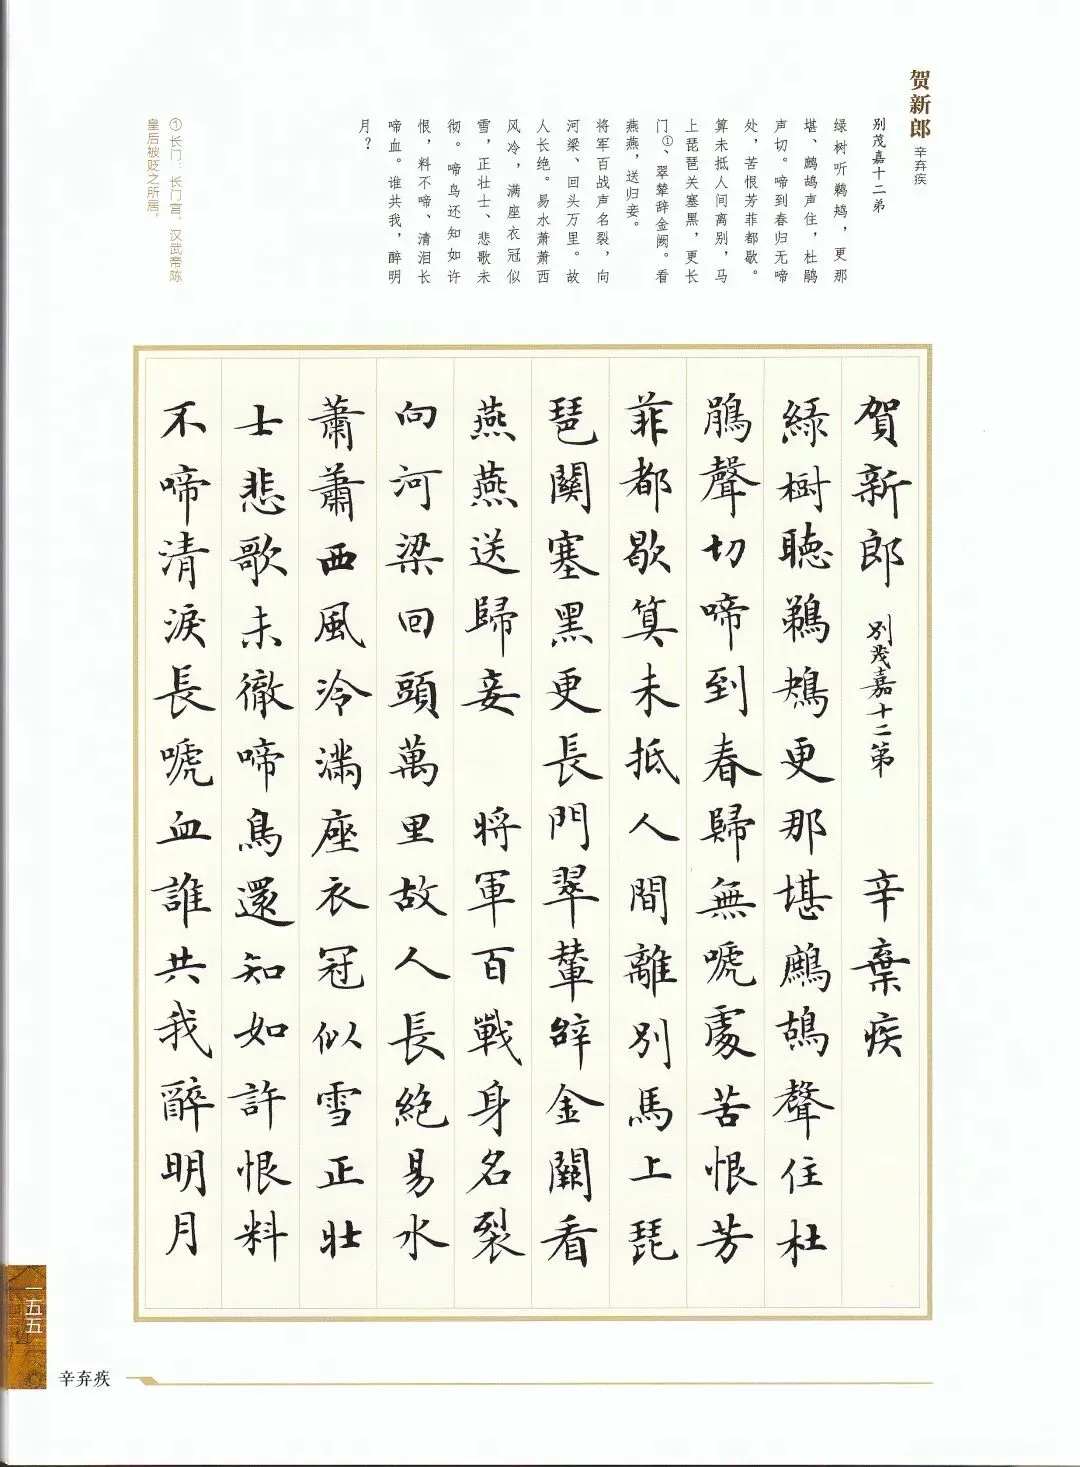 贺新郎 辛弃疾
别茂嘉十二弟
绿树听鹈鴂，更那
堪、鹧鸪声住，杜鹃
声切。啼到春归无啼
处，苦恨芳菲都歇。
算未抵人间离别，马
上琵琶关塞黑，更长
门①、翠辇辞金阙。看
燕燕，送归妾。
将军百战声名裂，向
河梁、回头万里。故
人长绝。易水萧萧西
风冷，满座衣冠似
雪，正壮士、悲歌未
彻。啼鸟还知如许
恨，料不啼、清泪长
啼血。谁共我，醉明
月？
①长门：长门宫，汉武帝陈
皇后被贬之所居。
賀新郎 别茂嘉十二第 辛棄疾
緑樹聽鵜鴂更那堪鷓鴣聲住杜
鵑聲切啼到春歸無嗁處苦恨芳
菲都歇算未抵人間離別馬上琵
琶關塞黑更長門翠輦辭金闕看
燕燕送歸妾 將軍百戰身名裂
向河梁回頭萬里故人長絕易水
蕭蕭西風冷滿座衣冠似雪正壯
士悲歌未徹啼鳥還知如許恨料
不啼清淚長嗁血誰共我醉明月
一五五
辛弃疾